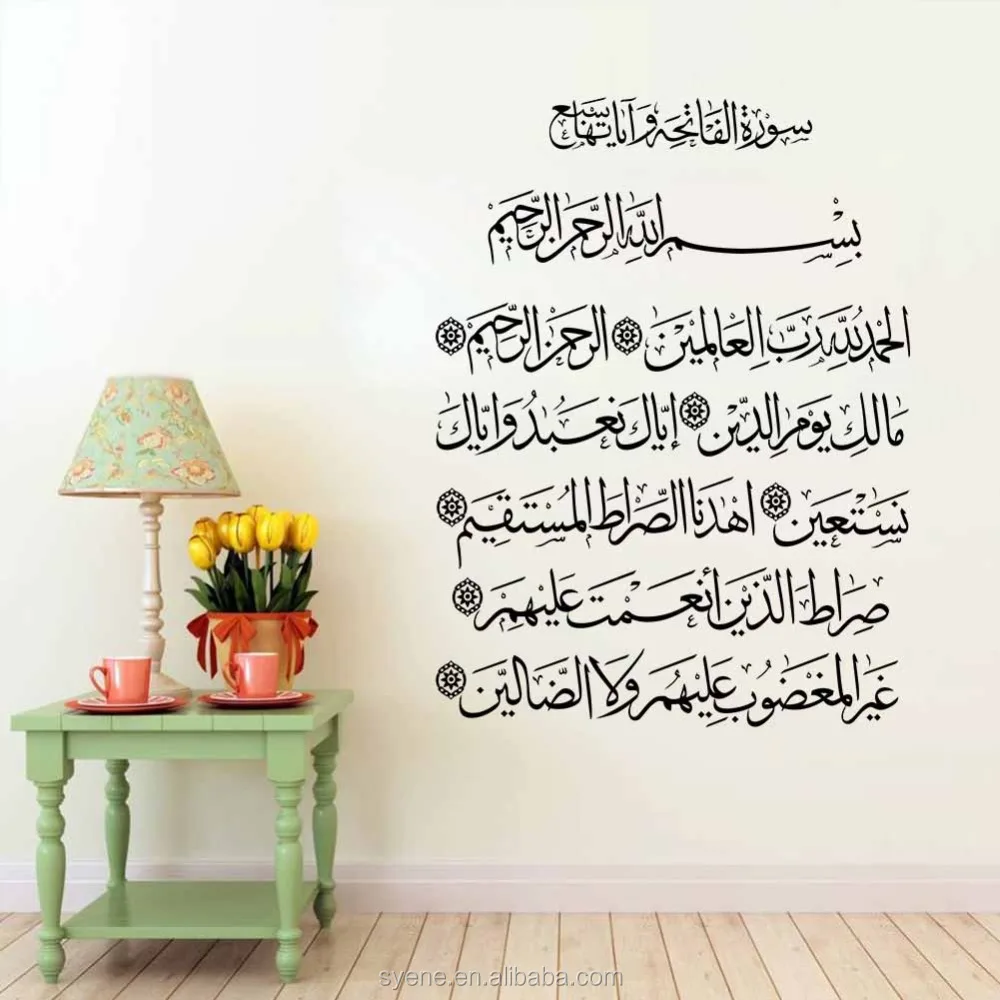 سورة الفاتحه وآياتها سبع
بسم الله الرحمن الرحيم
الحمد لله رب العالمين ۞ الرحمن الرحيم ۞
مالك يوم الدين ۞ إياك نعبد وإياك
نستعين ۞ اهدنا الصراط المستقيم ۞
صراط الذين أنعمت عليهم ۞
غير المغضوب عليهم ولا الضالين ۞
syene.en.alibaba.com